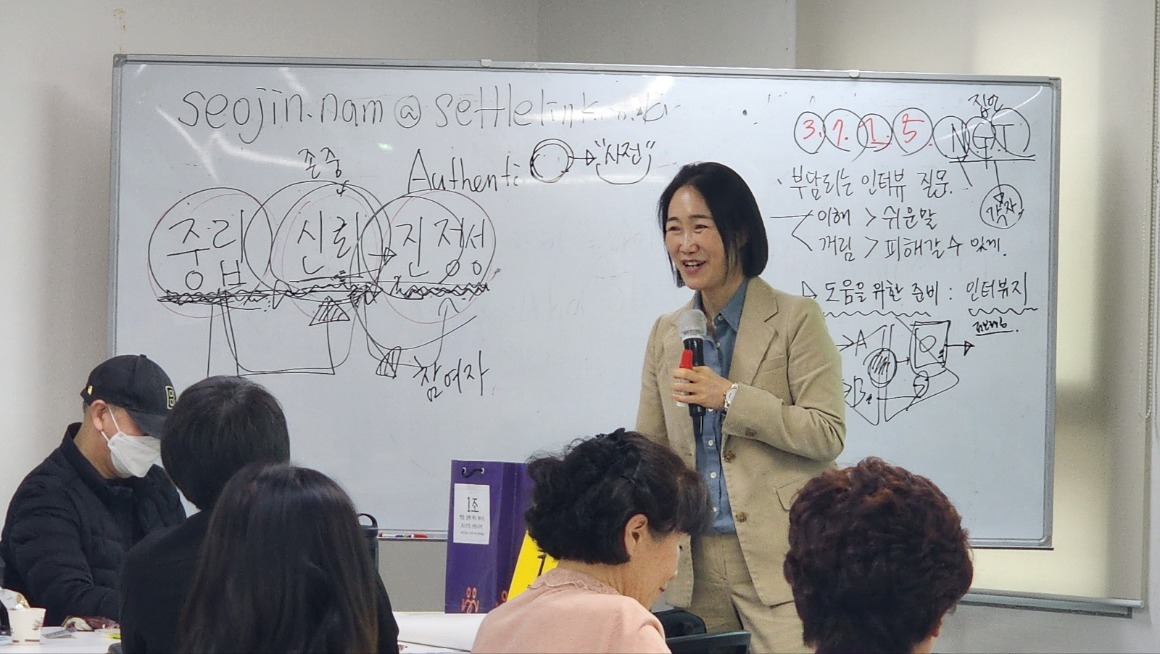 seojin.nam@settlelink
존중
Authenti
"사전"
중립 신뢰 진정성
참여자
3. 7. 1. 5. NGT
부담되는 인터뷰 질문.
이해 > 쉬운말
꺼림 > 피해갈 수 있게.
도움을 위한 준비 : 인터뷰지
A
B
1조